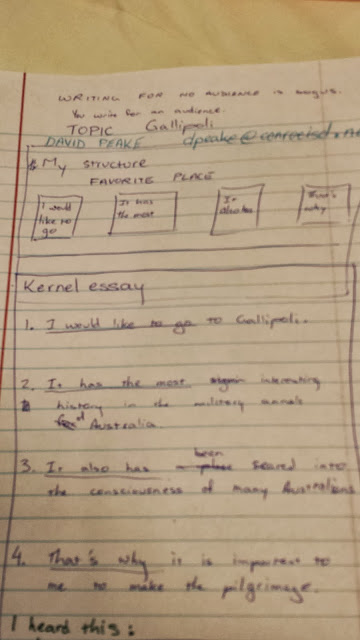 WRITING FOR NO AUDIENCE is bogus.
You write for an audience.
TOPIC Gallipoli
DAVID PEAKE
My structure
FAVORITE PLACE
I would like to go
It has the most
It also has
That's why
Kernel essay
1. I would like to go to Gallipoli.
2. It has the most interesting
history in the military annals
of Australia.
3. It also has been seared into
the consciousness of many Australians
4. That's why it is important to
me to make the pilgrimage.
I heard this: